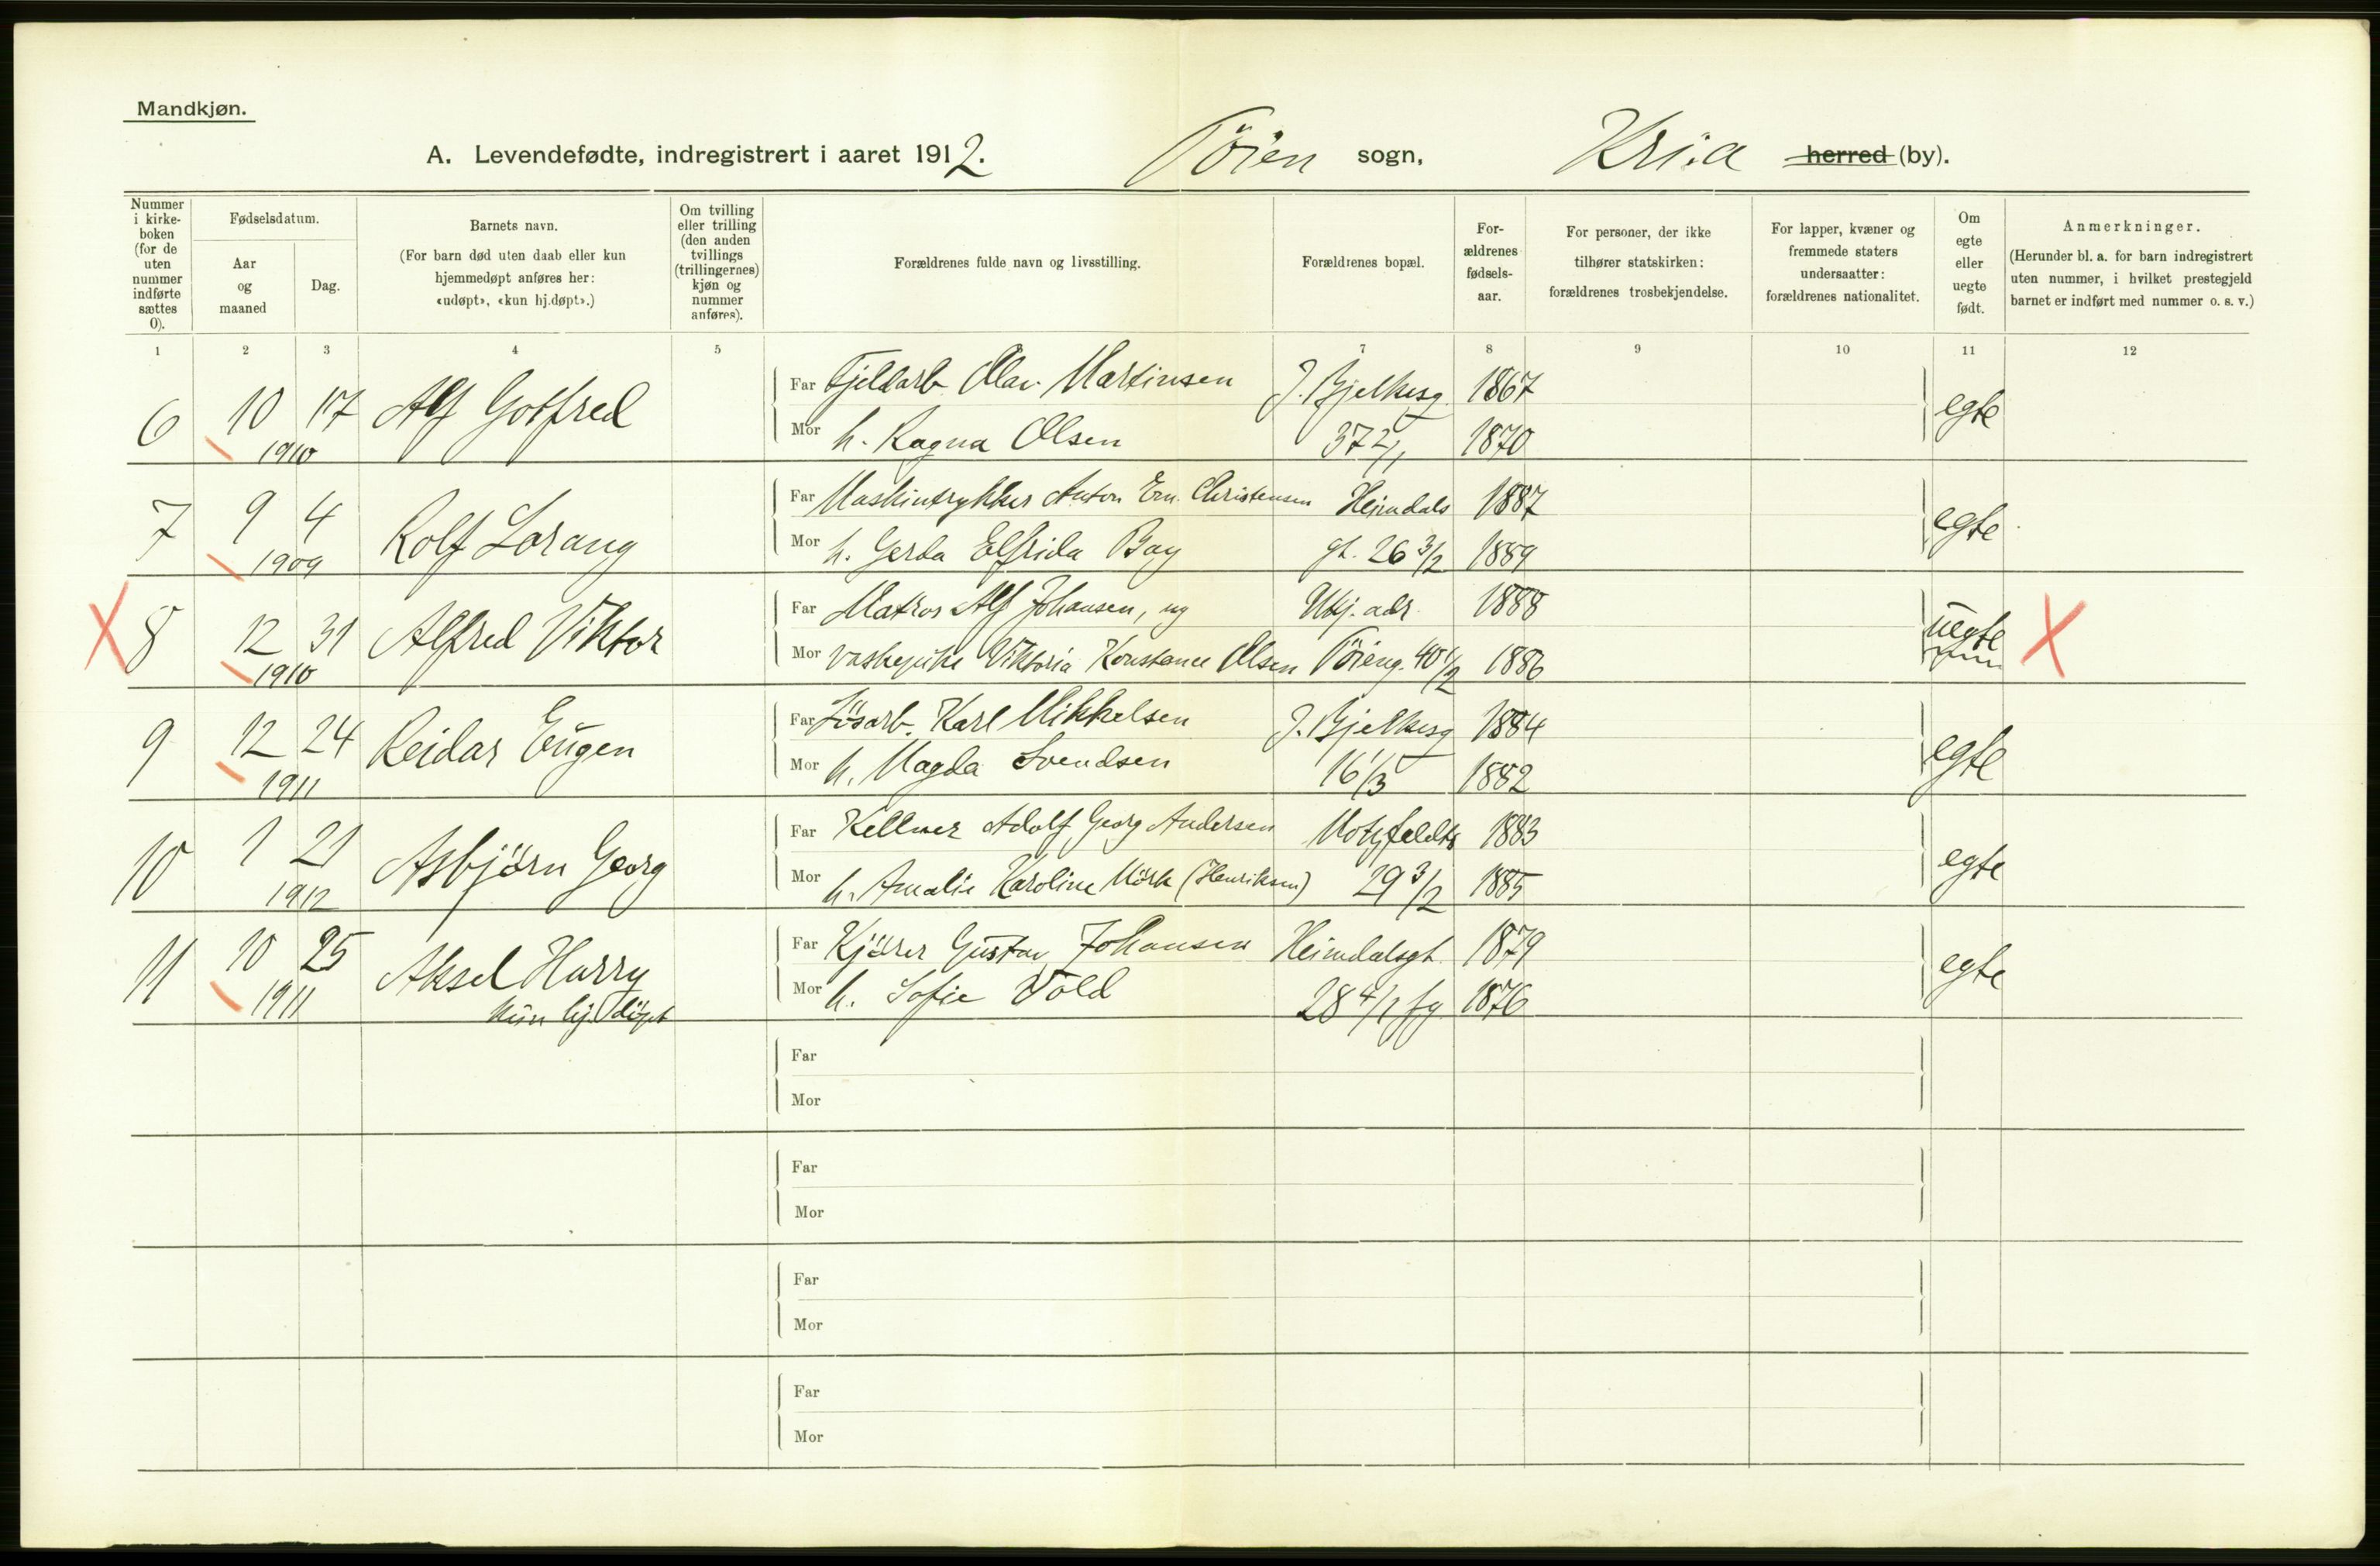 Mandkjøn.
A. Levendefødte, indregistrert i aaret 1912. Töien sogn, Kria herred (by).
Nummer i kirke-boken (for de uten nummer indførte sættes 0).
Fødselsdatum.
Aar og maaned
Dag.
Barnets navn.
(For barn død uten daab eller kun hjemmedøpt anføres her: «udøpt», «kun hj.døpt».)
Om tvilling eller trilling (den anden tvillings (trillingernes) kjøn og nummer anføres).
Forældrenes fulde navn og livsstilling.
Forældrenes bopæl.
For-ældrenes fødsels-aar.
For personer, der ikke tilhører statskirken: forældrenes trosbekjendelse.
For lapper, kvæner og fremmede staters undersaatter: forældrenes nationalitet.
Om egte eller uegte født.
Anmerkninger.
(Herunder bl. a. for barn indregistrert uten nummer, i hvilket prestegjeld barnet er indført med nummer o. s. v.)
1 2 3 4 5 7 8 9 10 11 12
6 10 17 Alf Gotfred Far Fjeldarb. Olav Martinsen J. Bjelkesg. 1867 egte
1910 Mor h. Ragna Olsen 37 2/1 1870
7 9 4 Rolf Lorang Far Maskintrykker Anton Em. Christensen Heimdals 1887 egte
1909 Mor h. Gerda Elfrida Bay gt. 26 3/2 1889
X 8 12 31 Alfred Viktor Far Matros Alf Johansen, ug Ukj. adr. 1888 uegte X
1910 Mor vaskepike Viktoria Konstance Olsen Töieng. 40 1/2 1886
9 12 24 Reidar Eugen Far Lösarb. Karl Mikkelsen J. Bjelkesg 1884 egte
1911 Mor h. Magda Svendsen 16 1/3 1882
10 1 21 Asbjörn Georg Far Kellner Adolf Georg Andersen Motzfeldts 1883 egte
1912 Mor h. Amalie Karoline Mörk (Henriksen) 29 3/2 1885
11 10 25 Aksel Harry Far Kjörer Gustav Johansen Heimdalsgt. 1879 egte
1911 kun hj. döpt Mor h. Sofie Vold 28 4/1 fg 1876
Far
Mor
Far
Mor
Far
Mor
Far
Mor